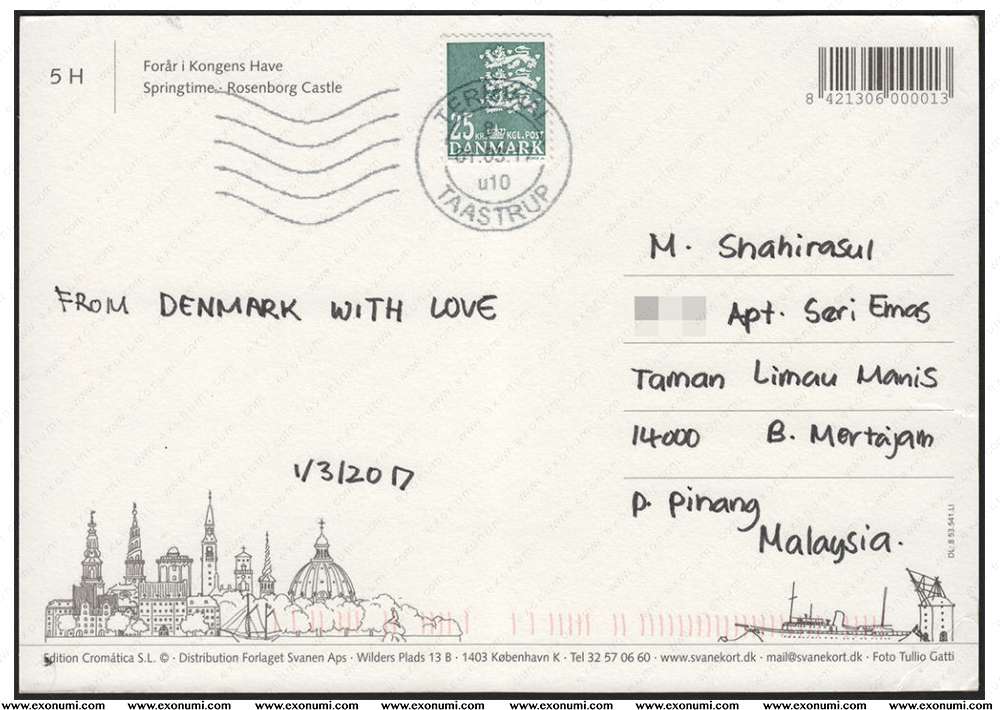 5 H
Forår i Kongens Have
Springtime · Rosenborg Castle
8 421306 000013
25 KR. KGL. POST
DANMARK
u10
TAASTRUP
M. Shahirasul
FROM DENMARK WITH LOVE
Apt. Seri Emas
Taman Limau Manis
14000 B. Mertajam
1/3/2017
P. Pinang
Malaysia.
Edition Cromática S.L. © · Distribution Forlaget Svanen Aps · Wilders Plads 13 B · 1403 København K · Tel 32 57 06 60 · www.svanekort.dk · mail@svanekort.dk · Foto Tullio Gatti
www.exonumi.com www.exonumi.com www.exonumi.com www.exonumi.com www.exonumi.com www.exonumi.com www.exonumi.com www.exonumi.com